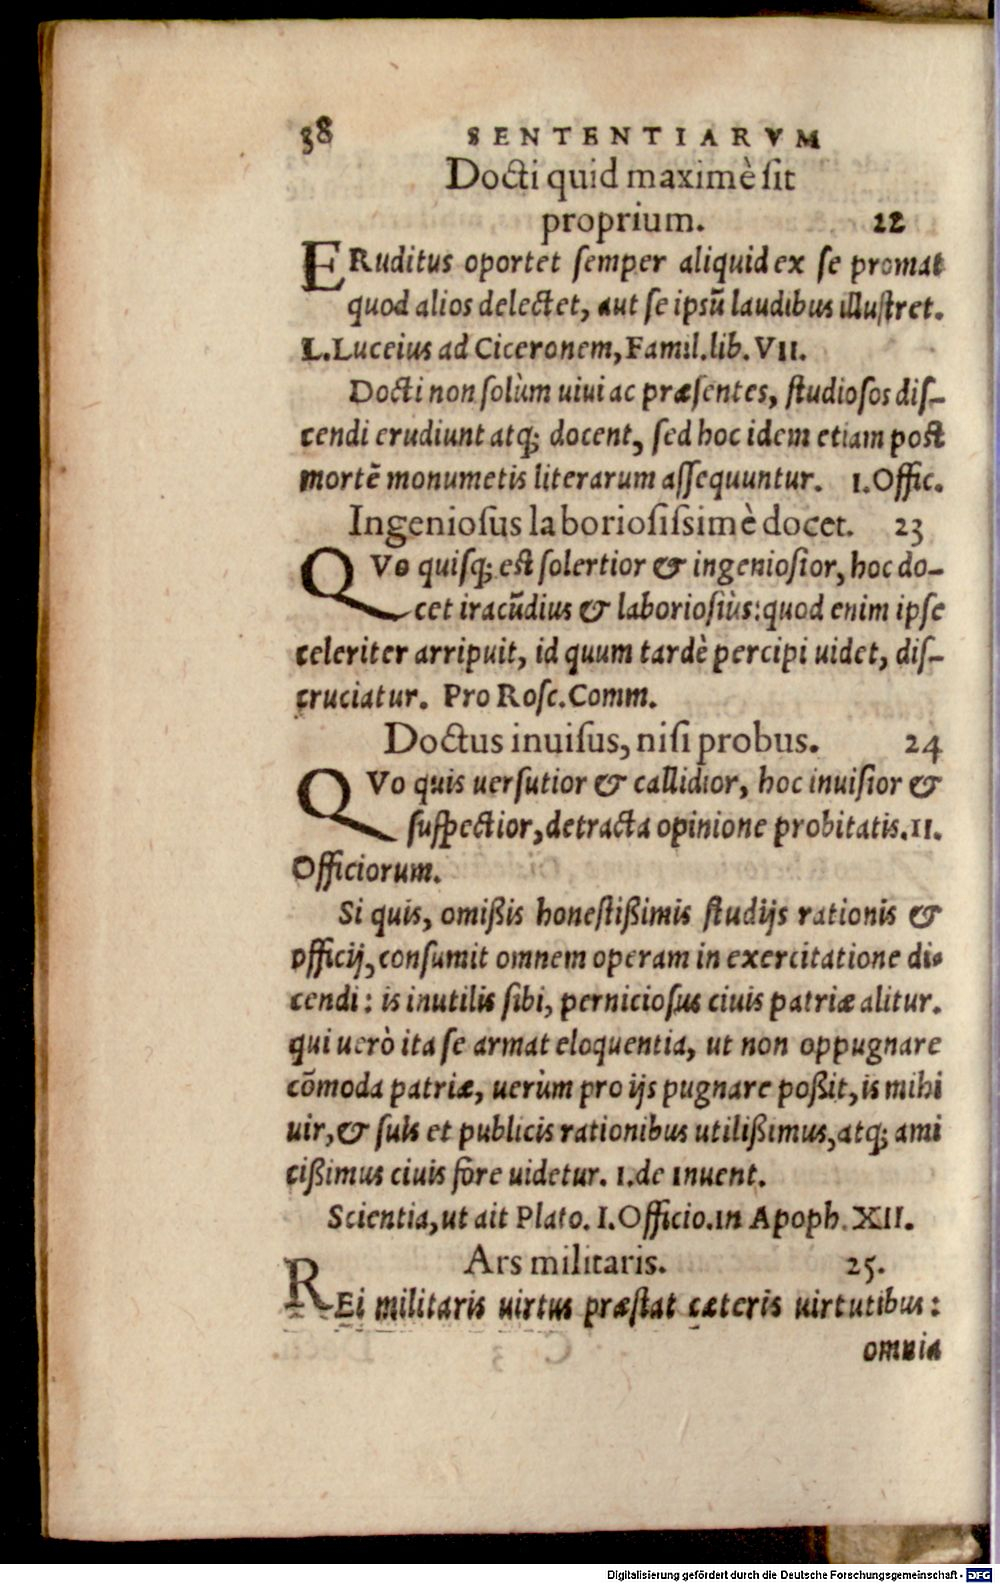 38 SENTENTIARVM
Docti quid maximè ſit
proprium. 22
ERuditus oportet ſemper aliquid ex ſe promat
quod alios delectet, aut ſe ipsũ laudibus illuſtret.
L. Luceius ad Ciceronem, Famil. lib. VII.
Docti non ſolùm uiui ac præſentes, ſtudioſos diſ-
cendi erudiunt atq; docent, ſed hoc idem etiam poſt
mortẽ monumetis literarum aſſequuntur. I. Offic.
Ingenioſus laborioſiſsimè docet. 23
QVo quiſq; eſt ſolertior & ingenioſior, hoc do-
cet iracũdius & laborioſiùs: quod enim ipſe
celeriter arripuit, id quum tardè percipi uidet, diſ-
cruciatur. Pro Roſc. Comm.
Doctus inuiſus, niſi probus. 24
QVo quis uerſutior & callidior, hoc inuiſior &
ſuſpectior, detracta opinione probitatis. II.
Officiorum.
Si quis, omißis honeſtißimis ſtudijs rationis &
officij, conſumit omnem operam in exercitatione di-
cendi: is inutilis ſibi, pernicioſus ciuis patriæ alitur.
qui uerò ita ſe armat eloquentia, ut non oppugnare
cõmoda patriæ, uerùm pro ijs pugnare poßit, is mihi
uir, & ſuis et publicis rationibus utilißimus, atq; ami
cißimus ciuis fore uidetur. I. de Inuent.
Scientia, ut ait Plato. I. Officio. in Apoph. XII.
Ars militaris. 25.
REi militaris uirtus præſtat cæteris uirtutibus:
omnia
Digitalisierung gefördert durch die Deutsche Forschungsgemeinschaft - DFG